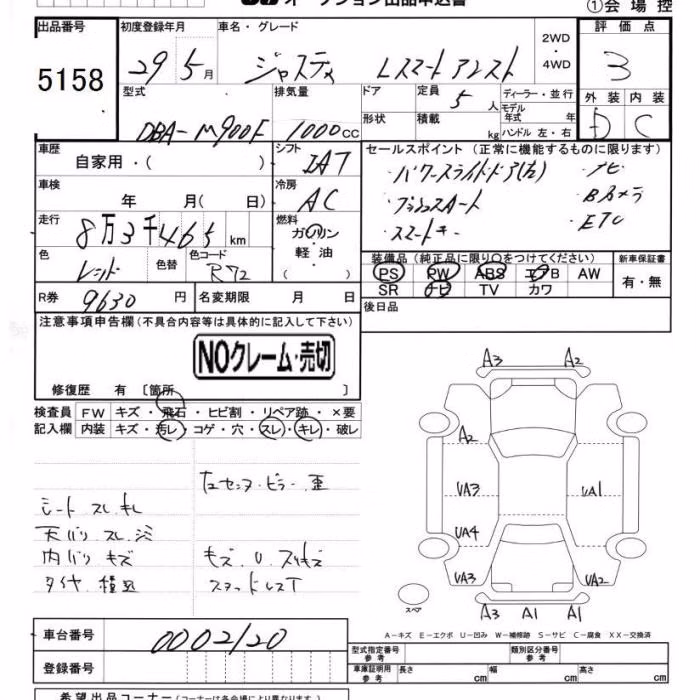 オークション出品申込書
①会場控
出品番号 初度登録年月 車名・グレード 2WD・4WD 評価点
5158 29年 5月 ジャスティ Lスマートアシスト 3
型式 排気量 ドア 定員 5人 ディーラー・並行 外装 内装
DBA-M900F 1000cc 形状 積載 kg モデル年式 年 ハンドル 左・右 D C
車歴 自家用・( ) シフト IAT セールスポイント (正常に機能するものに限ります)
車検 年 月( 日) 冷房 AC ・パワースライドドア(左) ・ナビ
・プッシュスタート ・Bカメラ
・スマートキー ・ETC
走行 8万3千465km 燃料 ガソリン・軽油・
色 レッド 色替 色コード R72
装備品 (純正品に限り○をつけてください) 新車保証書
PS PW ABS エアB AW 有・無
SR ナビ TV カワ
R券 9630円 名変期限 月 日 後日品
注意事項申告欄(不具合内容等は具体的に記入して下さい)
NOクレーム・売切
修復歴 有 〔箇所 〕
検査員 FW キズ・飛石・ヒビ割・リペア跡・×要
記入欄 内装 キズ・汚レ・コゲ・穴・スレ・キレ・破レ
左センターピラー歪
シート スレ キレ
天バリ スレ
内バリ キズ キズ U スリキズ
タイヤ 積込 スタッドレスT
A3 A2
A2
UA3 UA1
UA4
UA3 UA2
スペア
A3 A1 A1
A－キズ E－エクボ U－凹み W－補修跡 S－サビ C－腐食 XX－交換済
車台番号 0002120
登録番号
型式指定番号 参考 類別区分番号 参考
車庫証明用 参考 長さ cm 幅 cm 高さ cm
希望出品コーナー (コーナーは各会場により異なります。)